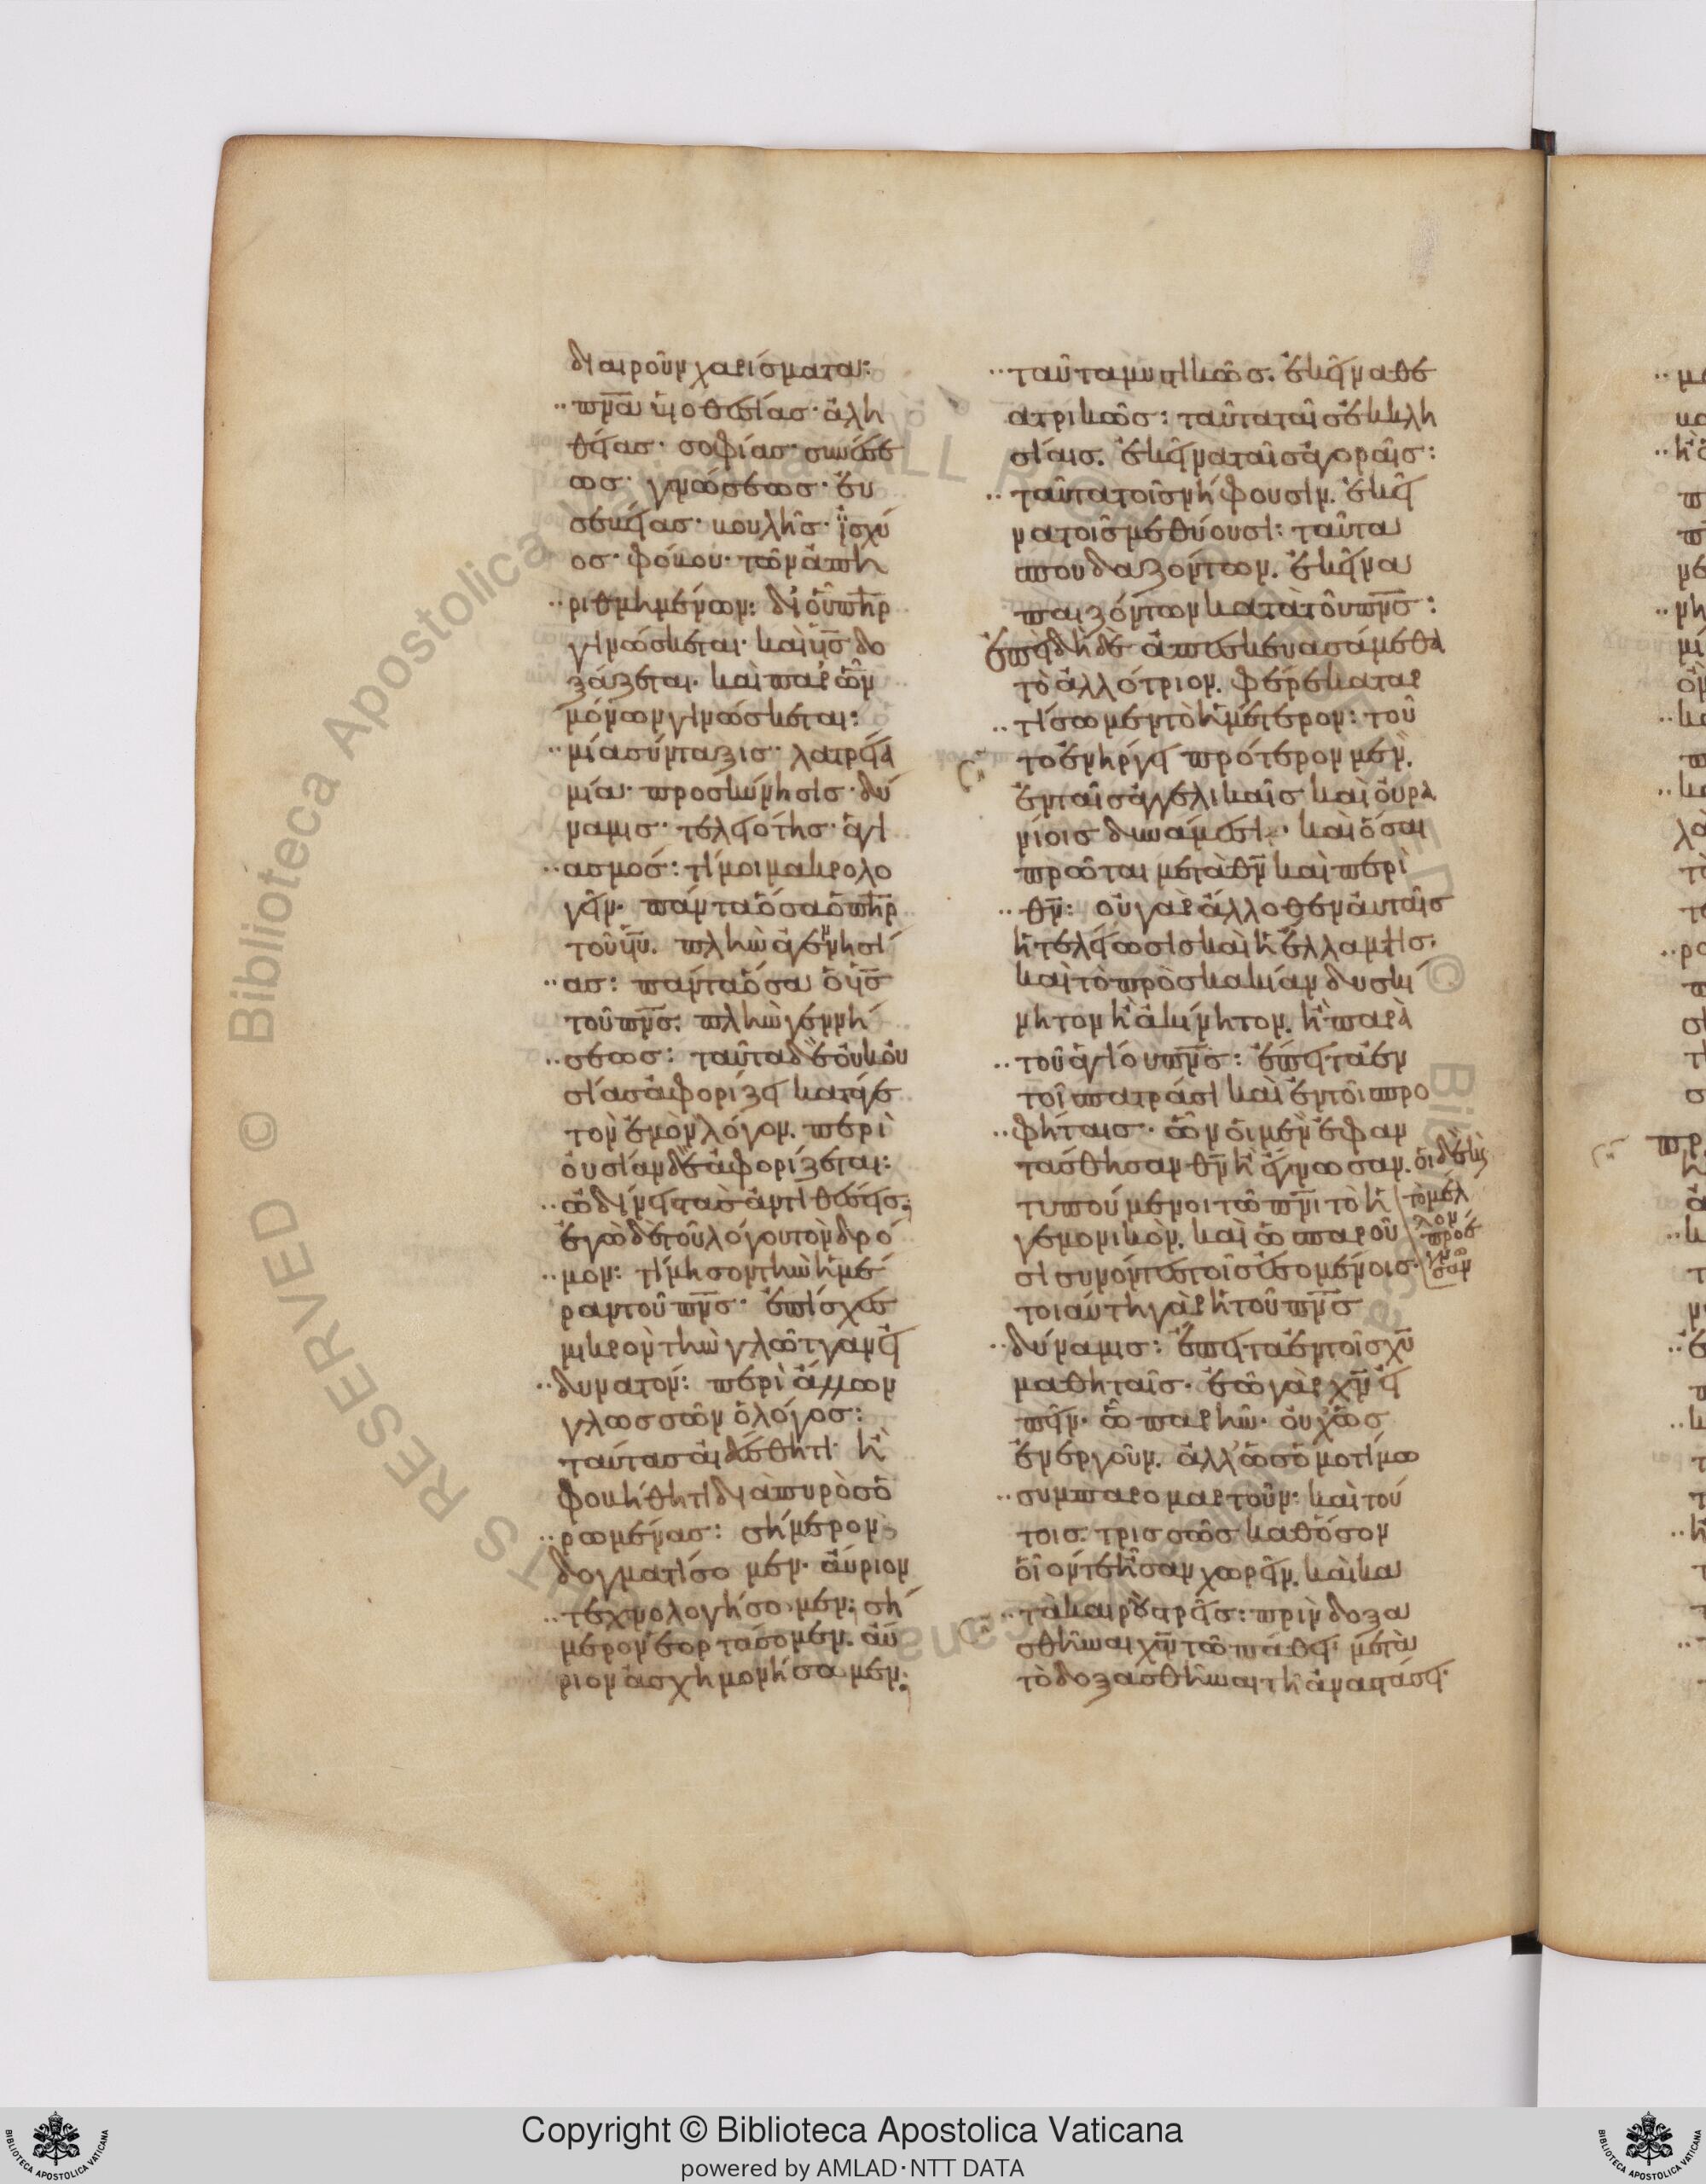 διαιροῦν χαρίσματα:
πν̅α υἱοθεσίας· ἀλη
θείας· σοφίας· συνέσε
ως· γνώσεως· εὐ
σεβείας· βουλῆς· ἰσχύ
ος· φόβου· τῶν ἀπη
ριθμημένων: δι' οὗ π̅η̅ρ
γινώσκεται· καὶ υ̅ς δο
ξάζεται· καὶ παρ' ὧν
μόνων γινώσκεται:
μία σύνταξις· λατρεία
μία· προσκύνησις· δύ
ναμις· τελειότης· ἁγι
ασμός: τί μοι μακρολο
γεῖν· πάντα ὅσα ὁ π̅η̅ρ
τοῦ υ̅υ. πλὴν ἀγεννησί
ας: πάντα ὅσα ὁ υ̅ς
τοῦ πν̅ς. πλὴν γεννή
σεως: ταῦτα δὲ οὐκ οὐ
σίας ἀφορίζει κατά γε
τὸν ἐμὸν λόγον. περὶ
οὐσίαν δὲ ἀφορίζεται:
ὠδίνεις τὰς ἀντιθέσεις;
ἐγὼ δὲ τοῦ λόγου τὸν δρό
μον: τίμησον τὴν ἡμέ
ραν τοῦ πν̅ς· ἐπίσχες
μικρὸν τὴν γλῶτταν εἰ
δυνατόν: περὶ ἄλλων
γλωσσῶν ὁ λόγος:
ταύτας αἰδέσθητι· ἢ
φοβήθητι διὰ πυρὸς ὁ
ρωμένας: σήμερον
δογματίσομεν· αὔριον
τεχνολογήσομεν: σή
μερον ἑορτάσομεν. αὔ
ριον ἀσχημονήσομεν:
ταῦτα μυστικῶς. ἐκεῖνα θε
ατρικῶς: ταῦτα ταῖς ἐκκλη
σίαις. ἐκεῖνα ταῖς ἀγοραῖς:
ταῦτα τοῖς νήφουσιν. ἐκεῖ
να τοῖς μεθύουσι: ταῦτα
σπουδαζόντων. ἐκεῖνα
παιζόντων κατὰ τοῦ πν̅ς:
ἐπειδὴ δὲ ἀπεσκευασάμεθα
τὸ ἀλλότριον. φέρε καταρ
τίσωμεν τὸ ἡμέτερον: τοῦ
το ἐνήργει πρότερον μὲν.
ἐν ταῖς ἀγγελικαῖς καὶ οὐρα
νίοις δυνάμεσι· καὶ ὅσαι
πρῶται μετὰ θν̅ καὶ περὶ
θν̅: οὐ γὰρ ἄλλοθεν αὐταῖς
ἡ τελείωσις καὶ ἡ ἔλλαμψις.
καὶ τὸ πρὸς κακίαν δυσκί
νητον ἢ ἀκίνητον. ἢ παρὰ
τοῦ ἁγίου πν̅ς: ἔπειτα ἐν
τοῖς πατράσι καὶ ἐν τοῖς προ
φήταις· ὧν οἱ μὲν ἐφαν
τάσθησαν θν̅ ἢ ἔγνωσαν. οἱ δὲ καὶ
τὸ μέλ
λον
προέ
γνω
σαν
τυπούμενοι τῶ πν̅ι τὸ ἡ
γεμονικὸν. καὶ ὡς παροῦ
σι συνόντες τοῖς ἐσομένοις·
τοιαύτη γὰρ ἡ τοῦ πν̅ς
δύναμις: ἔπειτα ἐν τοῖς χυ̅
μαθηταῖς· ἐῶ γὰρ χν̅ εἰ
πεῖν· ὧ παρῆν· οὐχ ὡς
ἐνεργοῦν. ἀλλ' ὡς ὁμοτίμω
συμπαρομαρτοῦν: καὶ τού
τοις. τρισσῶς καθόσον
οἷοί τε ἦσαν χωρεῖν. καὶ κα
τὰ καιροὺς τρεῖς: πρὶν δοξα
σθῆναι χν̅ τῶ πάθει· μετὰ
τὸ δοξασθῆναι τῆ ἀναστάσει·
Copyright © Biblioteca Apostolica Vaticana
powered by AMLAD·NTT DATA